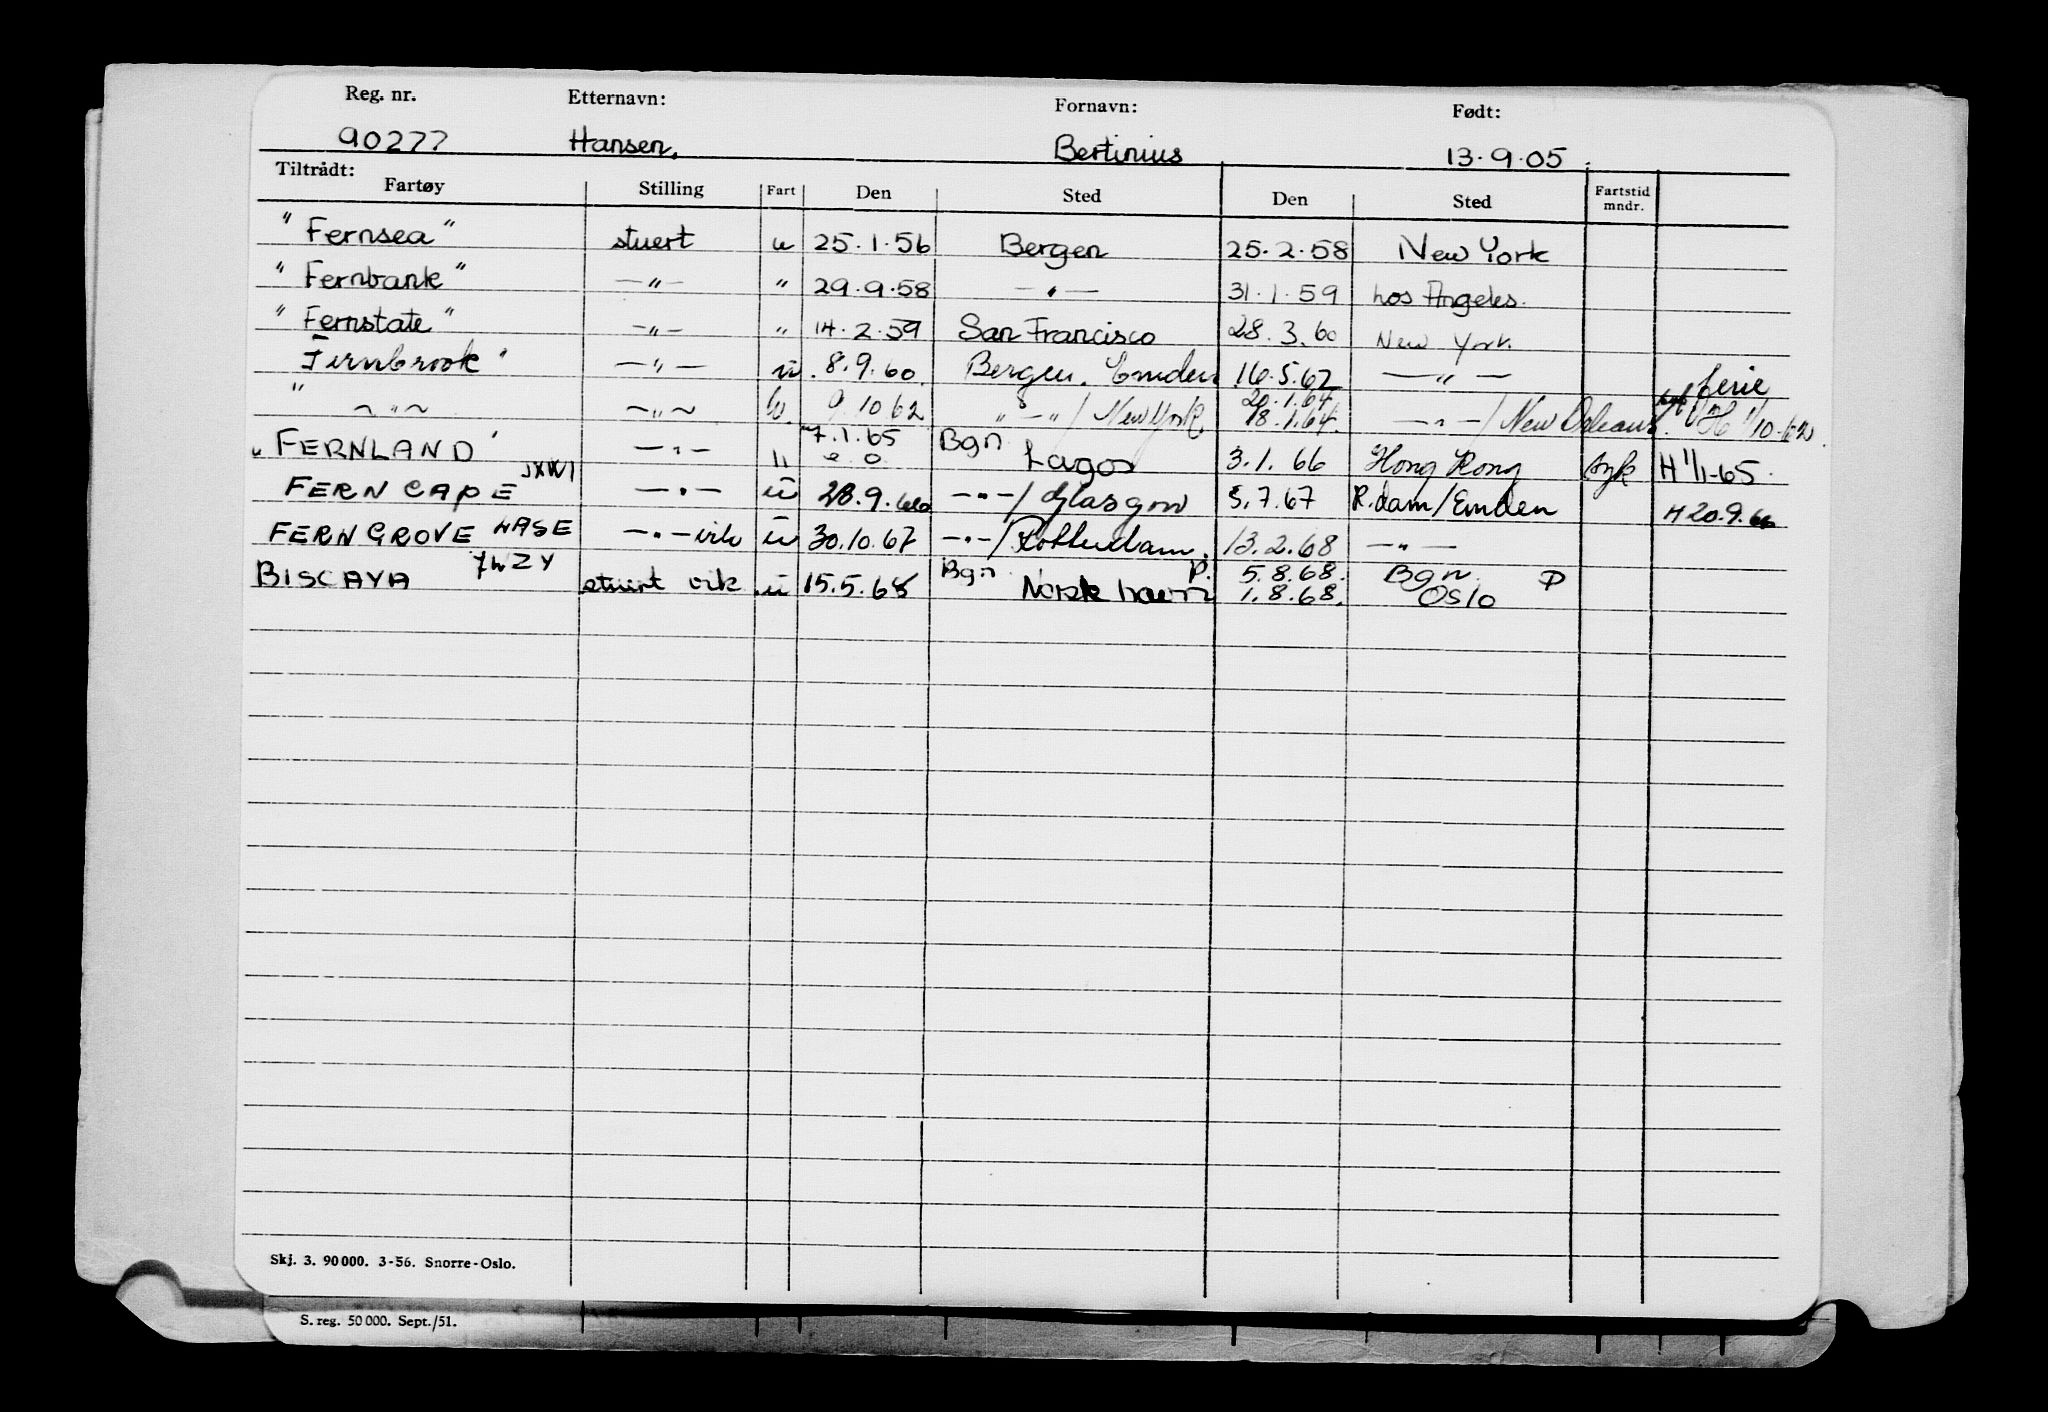 Reg. nr. Etternavn: Fornavn: Født:
90277 Hansen, Bertinius 13.9.05
Tiltrådt:
Fartøy Stilling Fart Den Sted Den Sted Fartstid mndr.
"Fernsea" stuert u 25.1.56 Bergen 25.2.58 New York
"Fernbank" —"— " 29.9.58 —"— 31.1.59 Los Angeles.
"Fernstate" —"— " 14.2.59 San Francisco 28.3.60 New York.
"Fernbrook" —"— u. 8.9.60. Bergen. Emden 16.5.62 —"— ferie
—"— —"— u. 9.10.62 —"—/New York. 20.1.64 18.1.64. —"—/New Orleans. H 1/10-62.
"FERNLAND" —"— u 7.1.65 Bgn Lagos 3.1.66 Hong Kong syk H 1/1-65.
FERNCAPE JXWI —"— u 28.9.66 —"—/Glasgow 5.7.67 R.dam/Emden H 20.9.66
FERNGROVE HASE —"— vik u 30.10.67 —"—/Rotterdam. 13.2.68 —"—
BISCAYA stuert vik u 15.5.68 Bgn P. Norsk havn 5.8.68. 1.8.68. Bgn P Oslo
Skj. 3. 90000. 3-56. Snorre-Oslo.
S. reg. 50000. Sept./51.